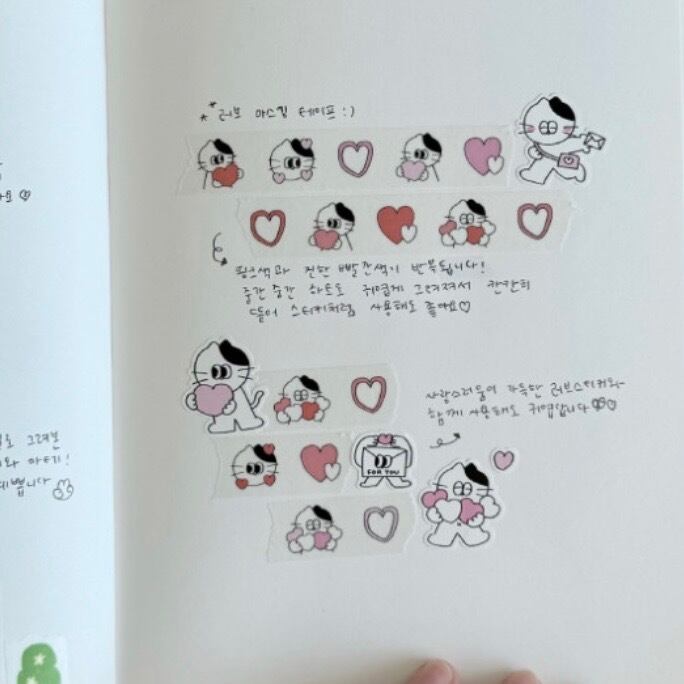 러브 마스킹 테이프 :)
핑크색과 진한 빨간색이 반복됩니다!
중간중간 하트도 귀엽게 그려져서 칸칸히
뜯어 스티커처럼 사용해도 좋아요♡
사랑스러움이 가득한 러브스티커와
함께 사용해도 귀엽답니다♡♡
FOR YOU
요 ♡
그려본
예쁩니다